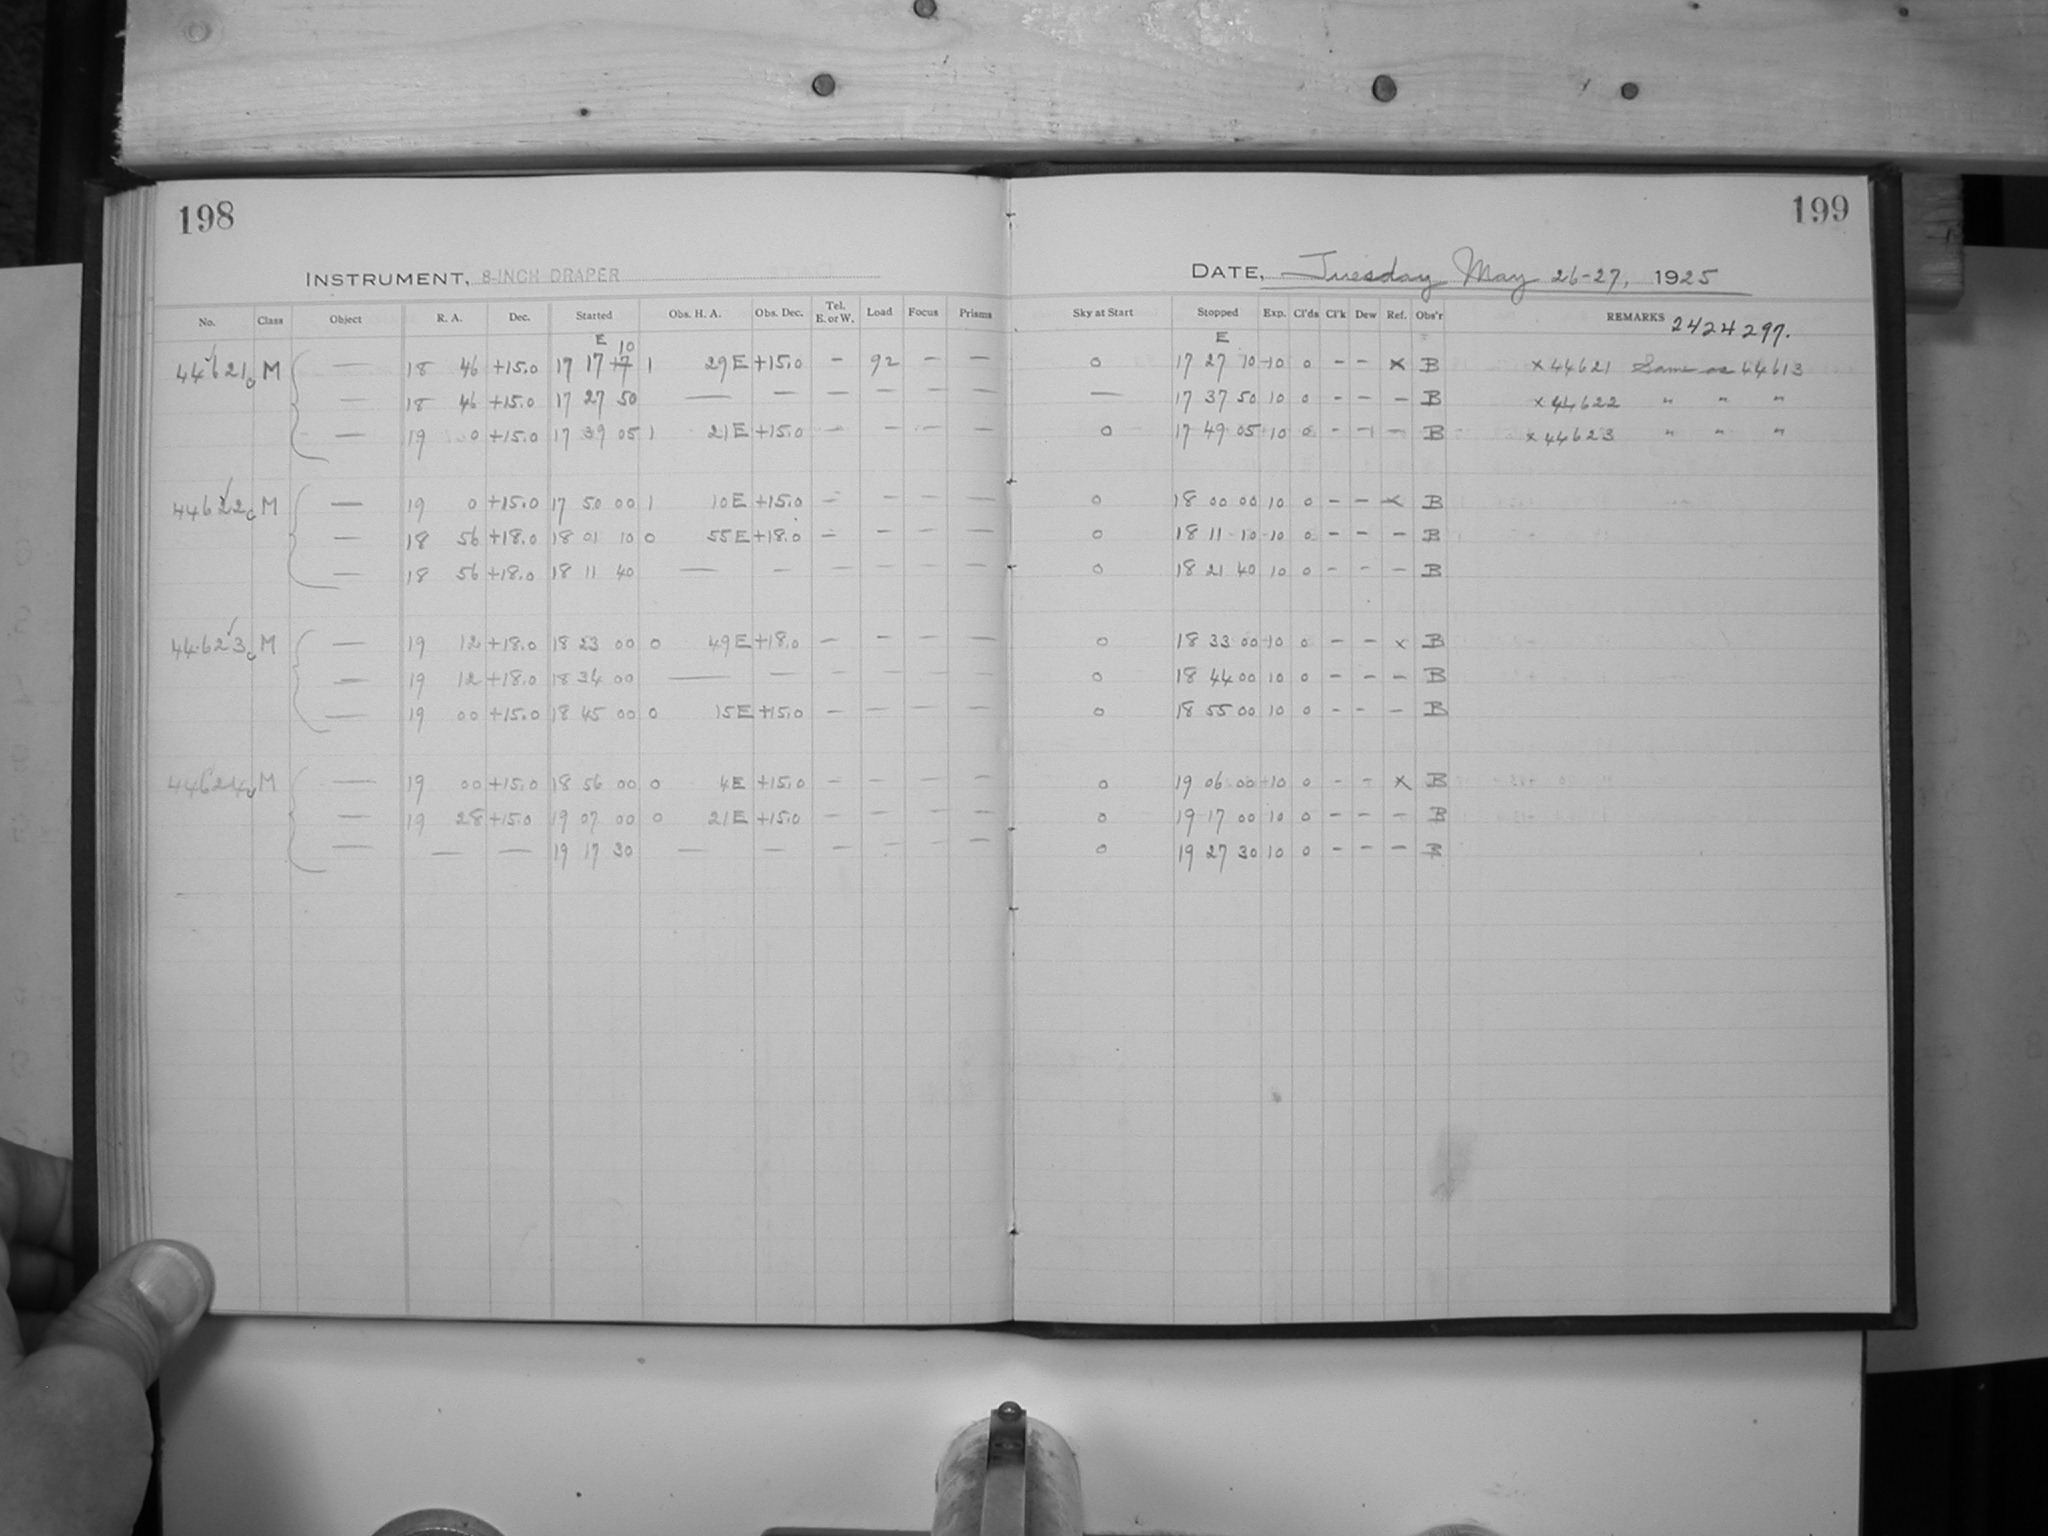 198
199
INSTRUMENT, 8-INCH DRAPER
DATE, Tuesday May 26-27, 1925
No. Class Object R. A. Dec. Started Obs. H. A. Obs. Dec. Tel. E. or W. Load Focus Prisms Sky at Start Stopped Exp. Cl'ds Cl'k Dew Ref. Obs'r REMARKS 2424297.
E 10 E
44621c M { — 18 46 +15.0 17 17 17 1 29 E +15.0 — 92 — — 0 17 27 10 10 0 – – x B x 44621 Same as 44613
— 18 46 +15.0 17 27 50 — — — — — — — 17 37 50 10 0 – – – B x 44622 " " "
— 19 0 +15.0 17 39 05 1 21 E +15.0 — — — — 0 17 49 05 10 0 – – – B x 44623 " " "
44622c M { — 19 0 +15.0 17 50 00 1 10 E +15.0 — — — — 0 18 00 00 10 0 – – x B
— 18 56 +18.0 18 01 10 0 55 E +18.0 — — — — 0 18 11 10 10 0 – – – B
— 18 56 +18.0 18 11 40 — — — — — — 0 18 21 40 10 0 – – – B
44623c M { — 19 12 +18.0 18 23 00 0 49 E +18.0 — — — — 0 18 33 00 10 0 – – x B
— 19 12 +18.0 18 34 00 — — — — — — 0 18 44 00 10 0 – – – B
— 19 00 +15.0 18 45 00 0 15 E +15.0 — — — — 0 18 55 00 10 0 – – – B
44624c M { — 19 00 +15.0 18 56 00 0 4 E +15.0 — — — — 0 19 06 00 10 0 – – x B
— 19 28 +15.0 19 07 00 0 21 E +15.0 — — — — 0 19 17 00 10 0 – – – B
— — — 19 17 30 — — — — — — 0 19 27 30 10 0 – – – B